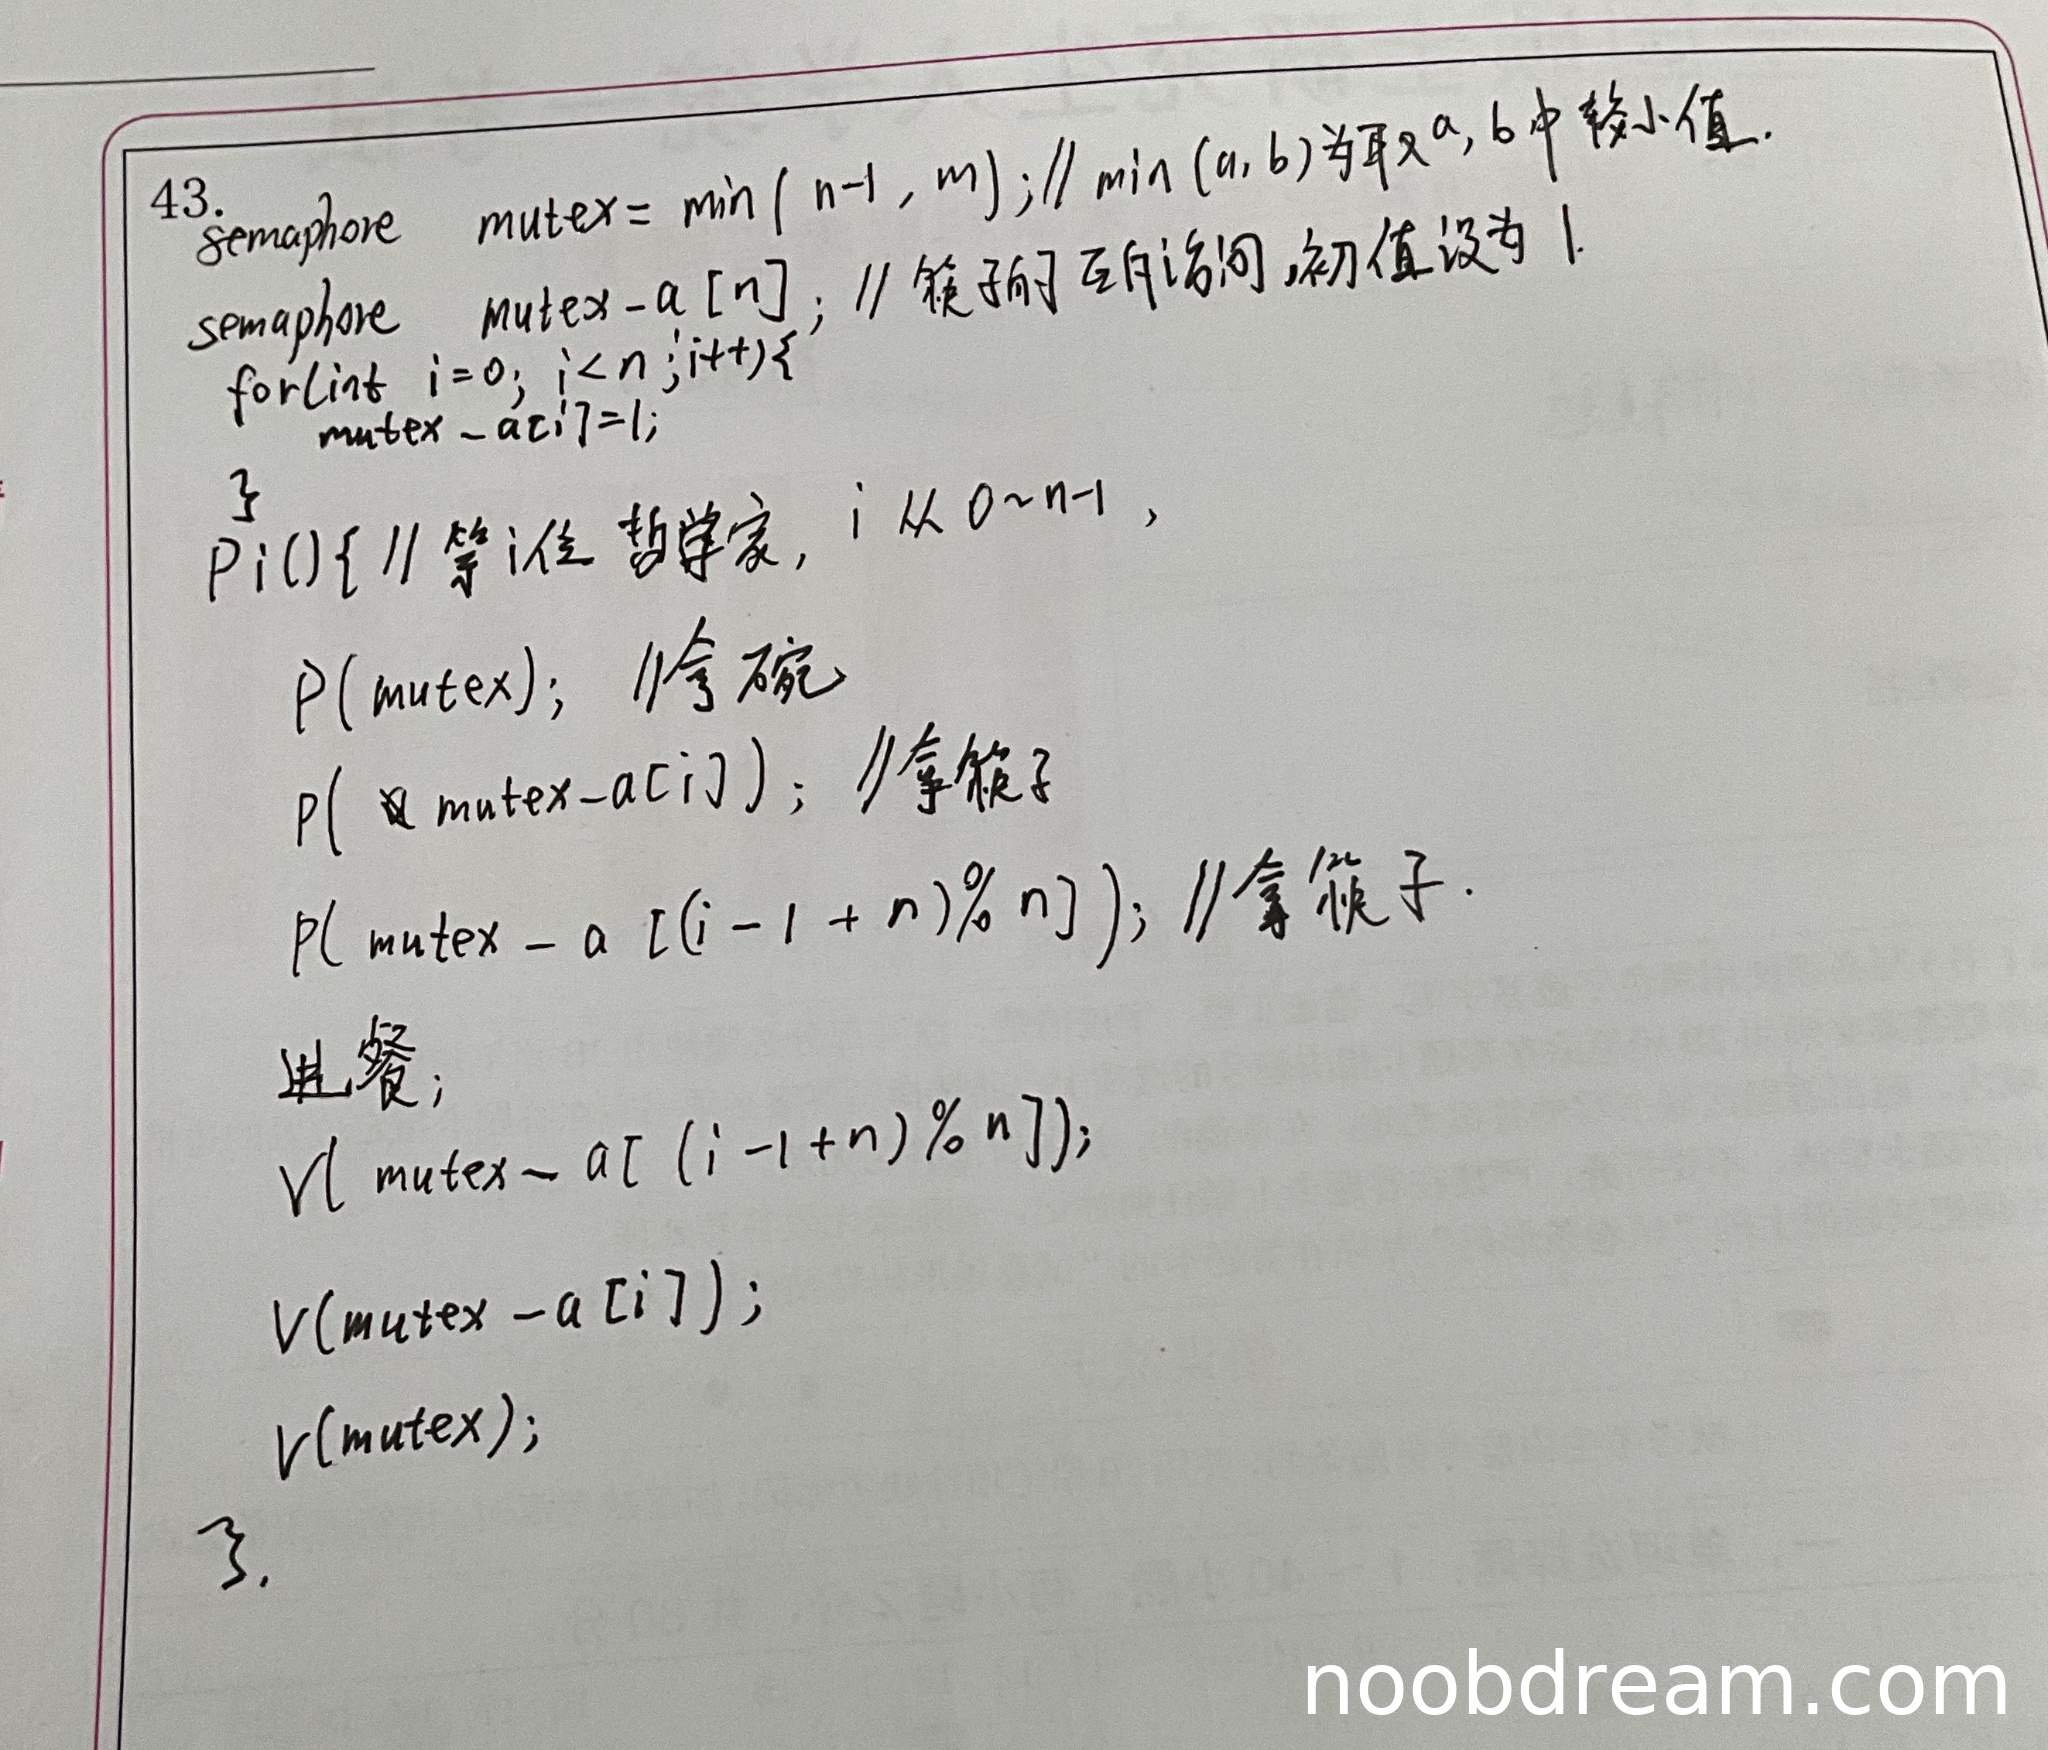 43.
semaphore mutex = min( n-1 , m ) ; // min (a, b) 为取 a, b 中 较小值.
semaphore mutex-a [n] ; // 筷子的互斥访问,初值设为 1.
for(int i=0; i<n ;i++){
mutex-a[i]=1;
}
Pi(){ // 第i位 哲学家, i 从 0~n-1 ,
P(mutex); //拿碗
P( mutex-a[i]) ; //拿筷子
P( mutex-a [(i-1+n)%n] ); //拿筷子.
进餐;
V( mutex-a[ (i-1+n)%n]);
V(mutex-a[i]);
V(mutex);
}.
noobdream.com